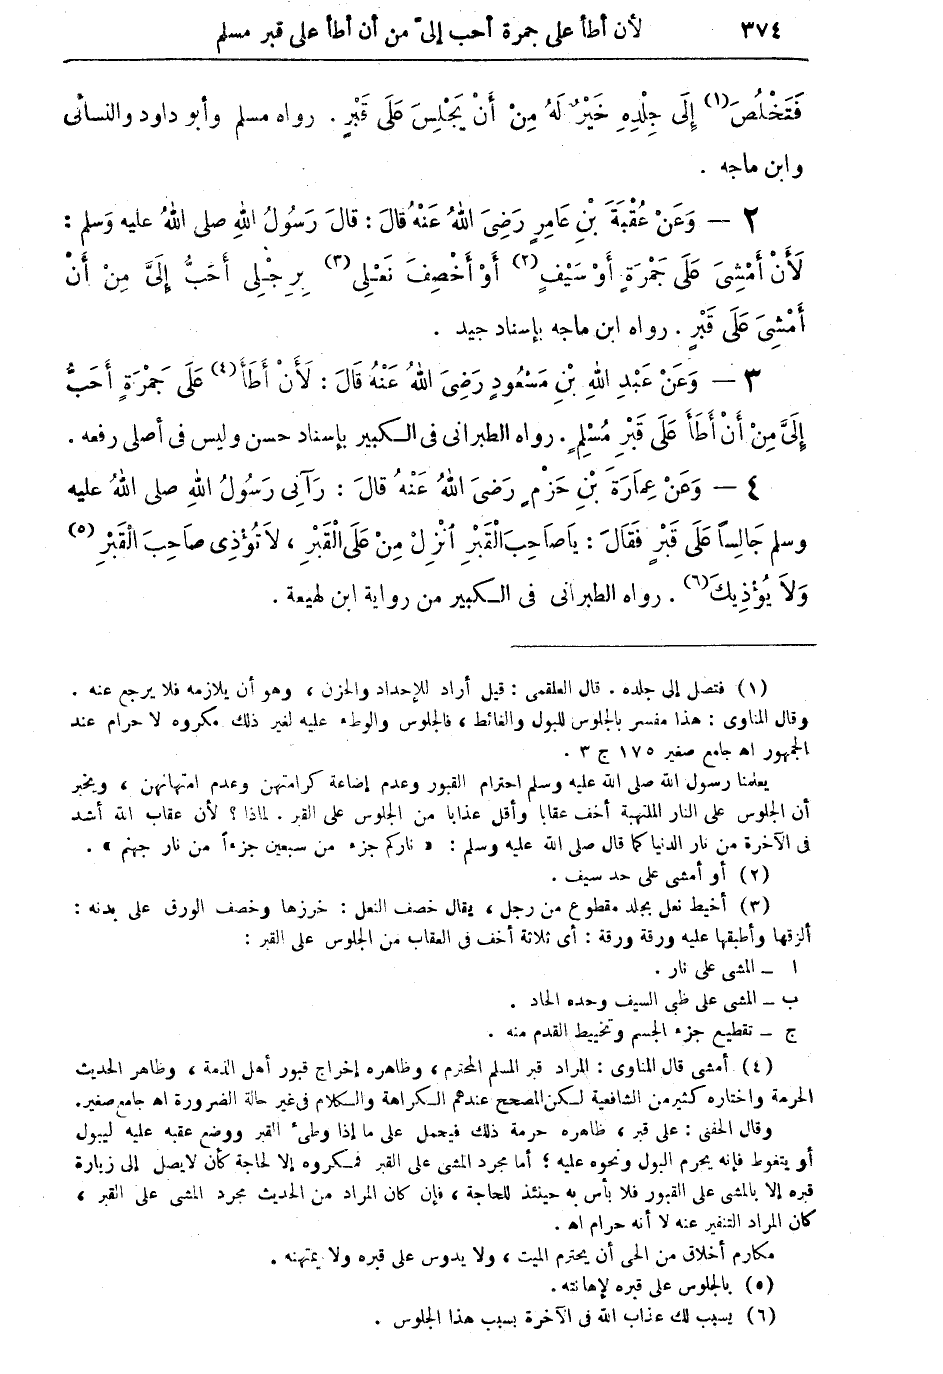 ٣٧٤ لأن أطأ على جمرة أحب إلىّ من أن أطأ على قبر مسلم
فَتَخْلُصَ(١) إِلَى جِلْدِهِ خَيْرٌ لَهُ مِنْ أَنْ يَجْلِسَ عَلَى قَبْرٍ . رواه مسلم وأبو داود والنسائى
وابن ماجه .
٢ — وَعَنْ عُقْبَةَ بْنِ عَامِرٍ رَضِىَ اللهُ عَنْهُ قَالَ : قَالَ رَسُولُ اللهِ صلى اللهُ عليه وَسلم :
لَأَنْ أَمْشِىَ عَلَى جَمْرَةٍ أَوْ سَيْفٍ(٢) أَوْ أَخْصِفَ نَعْلِى(٣) بِرِجْلِى أَحَبُّ إِلَىَّ مِنْ أَنْ
أَمْشِىَ عَلَى قَبْرٍ . رواه ابن ماجه بإسناد جيد .
٣ — وَعَنْ عَبْدِ اللهِ بْنِ مَسْعُودٍ رَضِىَ اللهُ عَنْهُ قَالَ : لَأَنْ أَطَأَ(٤) عَلَى جَمْرَةٍ أَحَبُّ
إِلَىَّ مِنْ أَنْ أَطَأَ عَلَى قَبْرِ مُسْلِمٍ . رواه الطبرانى فى الكبير بإسناد حسن وليس فى أصلى رفعه .
٤ — وَعَنْ عِمَارَةَ بْنِ حَزْمٍ رَضِىَ اللهُ عَنْهُ قَالَ : رَآنِى رَسُولُ اللهِ صلى اللهُ عليه
وسلم جَالِساً عَلَى قَبْرٍ فَقَالَ : يَاصَاحِبَ الْقَبْرِ انْزِلْ مِنْ عَلَى الْقَبْرِ ، لاَ تُؤْذِى صَاحِبَ الْقَبْرِ(٥)
وَلاَ يُؤْذِيكَ(٦) . رواه الطبرانى فى الكبير من رواية ابن لهيعة .
(١) فتصل إلى جلده . قال العلقمى : قيل أراد للإحداد والحزن ، وهو أن يلازمه فلا يرجع عنه .
وقال المناوى : هذا مفسر بالجلوس للبول والغائط ، فالجلوس والوطء عليه لغير ذلك مكروه لا حرام عند
الجمهور اه جامع صغير ١٧٥ ج ٣ .
يعلمنا رسول الله صلى الله عليه وسلم احترام القبور وعدم إضاعة كرامتهن وعدم امتهانهن ، ويخبر
أن الجلوس على النار الملتهبة أخف عقابا وأقل عذابا من الجلوس على القبر . لماذا ؟ لأن عقاب الله أشد
فى الآخرة من نار الدنيا كما قال صلى الله عليه وسلم : « ناركم جزء من سبعين جزءاً من نار جهنم » .
(٢) أو أمشى على حد سيف .
(٣) أخيط نعل بجلد مقطوع من رجل ، يقال خصف النعل : خرزها وخصف الورق على بدنه :
ألزقها وأطبقها عليه ورقة ورقة : أى ثلاثة أخف فى العقاب من الجلوس على القبر :
ا — المشى على نار .
ب — المشى على ظبى السيف وحده الحاد .
ج — تقطيع جزء الجسم وتخييط القدم منه .
(٤) أمشى قال المناوى : المراد قبر المسلم المحترم ، وظاهره إخراج قبور أهل الذمة ، وظاهر الحديث
الحرمة واختاره كثير من الشافعية لكن المصحح عندهم الكراهة والكلام فى غير حالة الضرورة اه جامع صغير.
وقال الحفنى : على قبر ، ظاهره حرمة ذلك فيحمل على ما إذا وطىء القبر ووضع عقبه عليه ليبول
أو يتغوط فإنه يحرم البول ونحوه عليه ؛ أما مجرد المشى على القبر فمكروه إلا لحاجة كأن لايصل إلى زيارة
قبره إلا بالمشى على القبور فلا بأس به حينئذ للحاجة ، فإن كان المراد من الحديث مجرد المشى على القبر ،
كان المراد التنفير عنه لا أنه حرام اه .
مكارم أخلاق من الحى أن يحترم الميت ، ولا يدوس على قبره ولا يمتهنه .
(٥) بالجلوس على قبره لإهانته .
(٦) يسبب لك عذاب الله فى الآخرة بسبب هذا الجلوس .